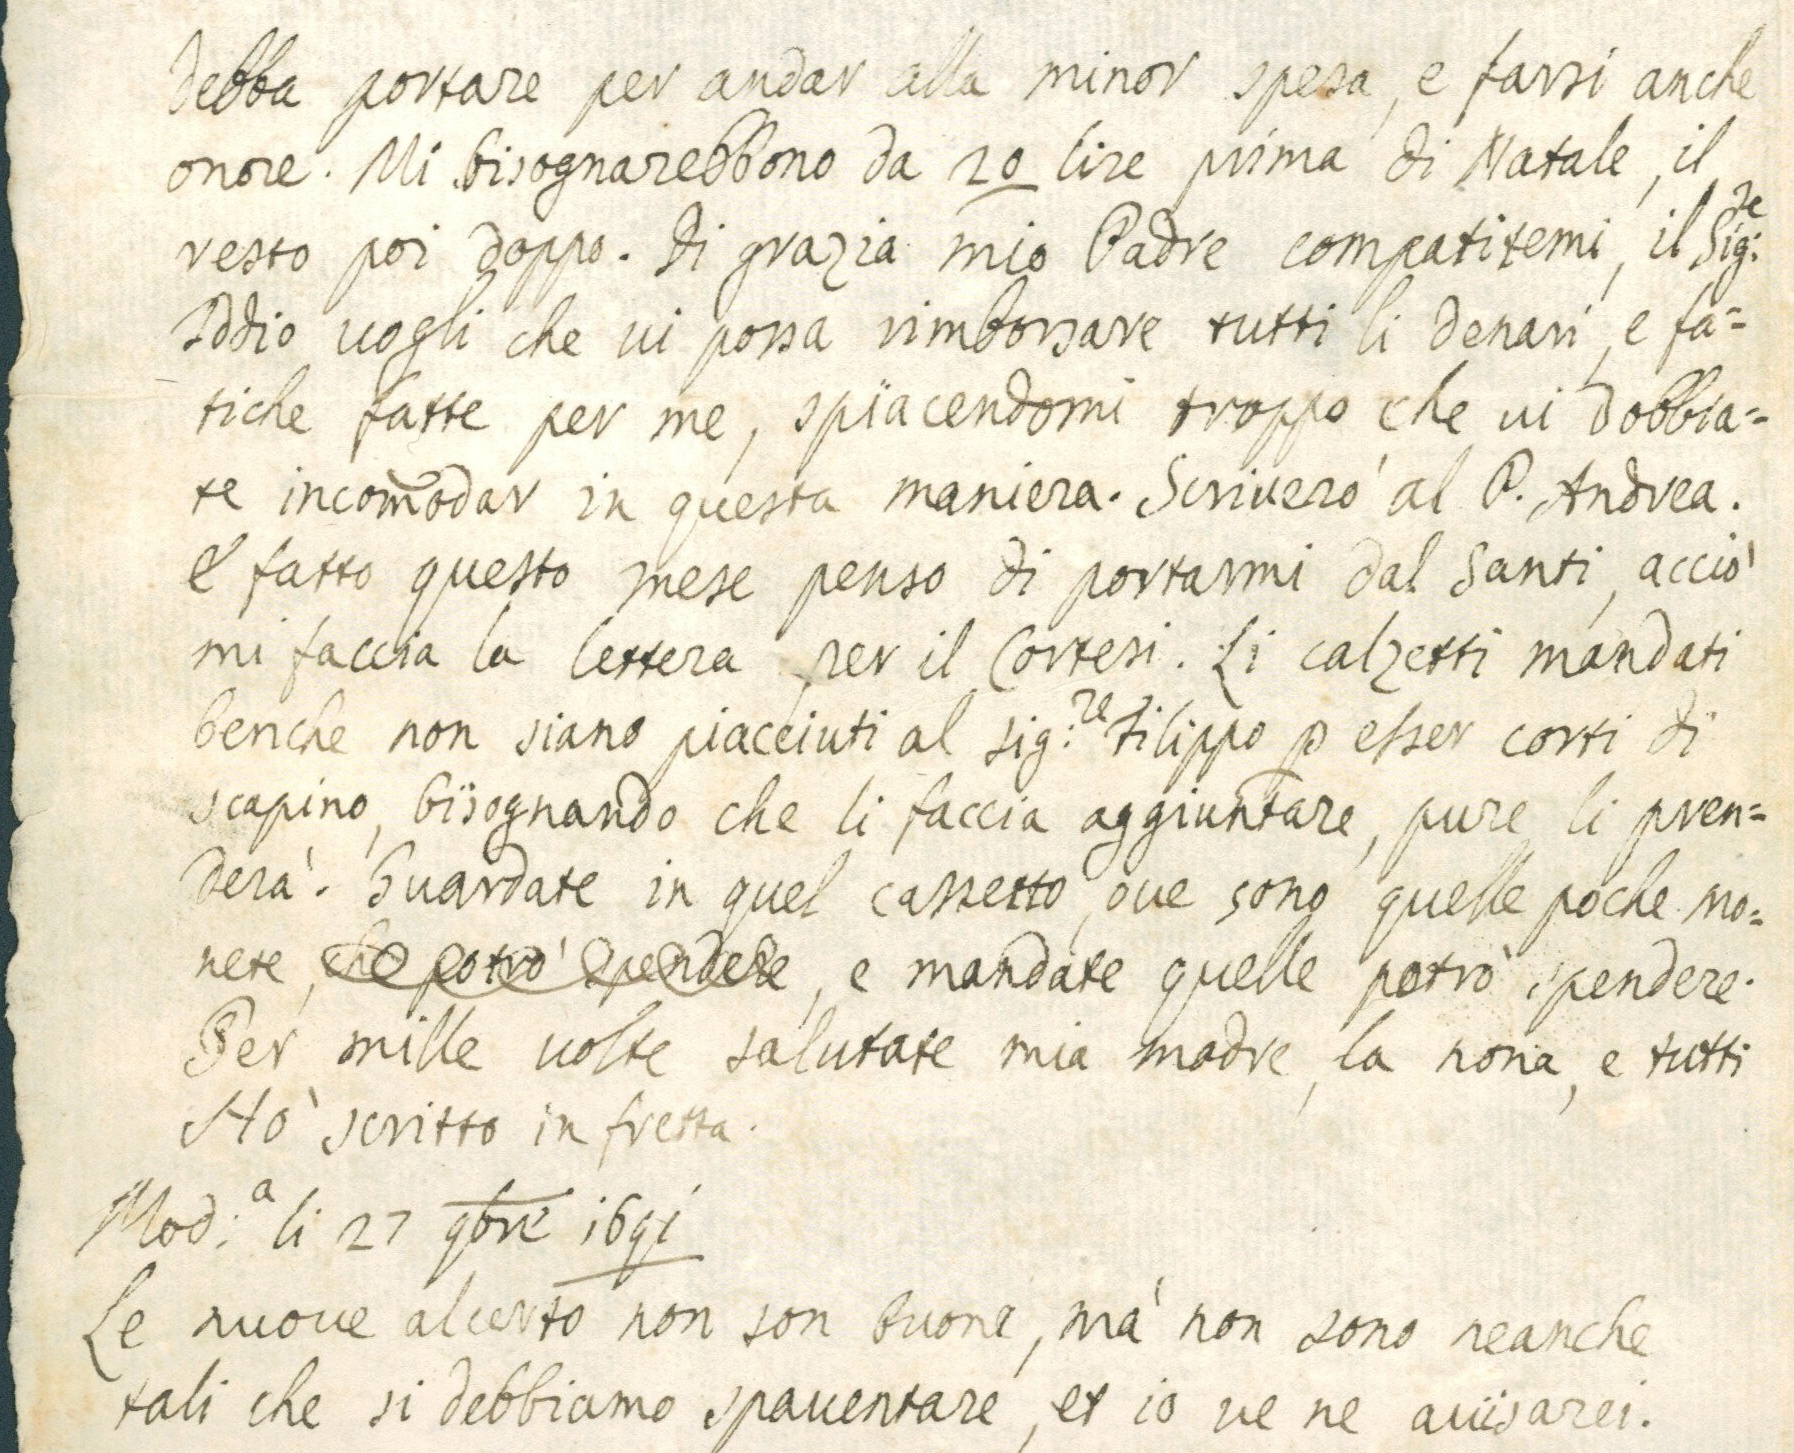 debba portare per andar alla minor spesa, e farsi anche
onore. Mi bisognarebbono da 20 lire prima di Natale, il
resto poi doppo. Di grazia mio Padre compatitemi, il Sig:re
Iddio uogli che ui possa rimborsare tutti li denari, e fa=
tiche fatte per me, spiacendomi troppo che ui dobbia=
te incom̃odar in questa maniera. Scriuerò al P. Andrea.
E fatto questo mese penso di portarmi dal Santi, acciò
mi faccia la lettera per il Cortesi. Li calzetti mandati
benche non siano piacciuti al sig:re Filippo p esser corti di
scapino, bisognando che li faccia aggiuntare, pure li pren=
derà. Guardate in quel cassetto, oue sono quelle poche mo=
nete, che potrò spendere, e mandate quelle potrò spendere.
Per mille uolte salutate mia madre, la nona, e tutti
Hò scritto in fretta.
Mod:a li 27 9bre 1691
Le nuoue alcerto non son buone, mà non sono neanche
tali che si debbiamo spauentare, et io ue ne auisarei.